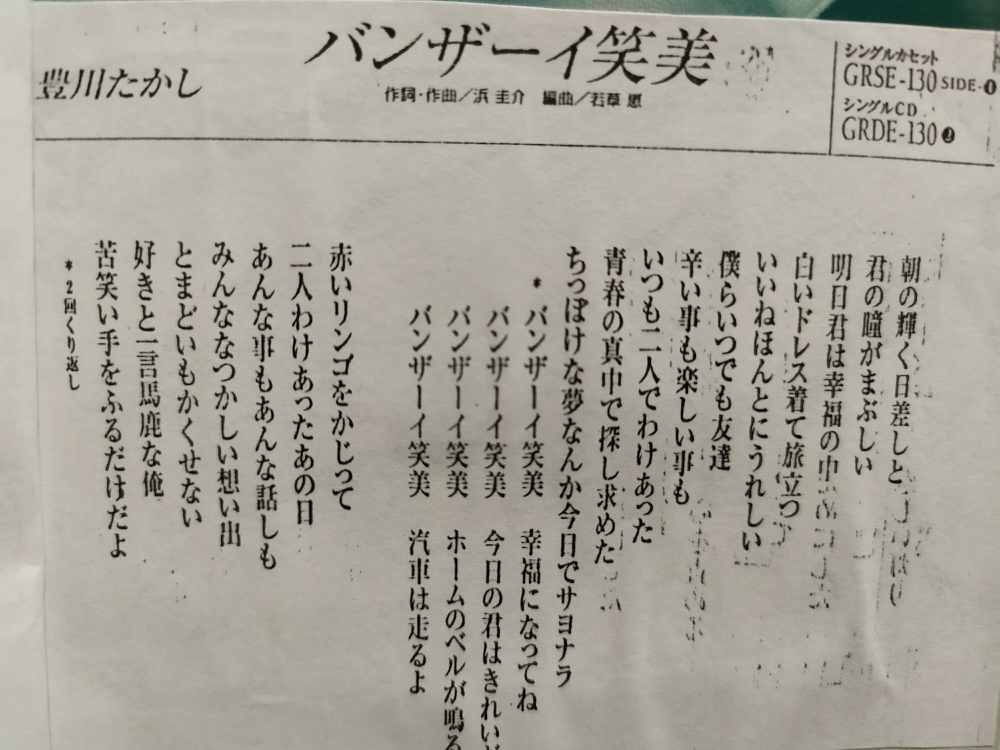 バンザーイ笑美
豊川たかし
作詞・作曲/浜 圭介 編曲/若草 恵
シングルカセット
GRSE-130 SIDE-
シングルCD
GRDE-130
朝の輝く日差しと
君の瞳がまぶしい
明日君は幸福の中
白いドレス着て旅立つ
いいねほんとにうれしい
僕らいつでも友達
辛い事も楽しい事も
いつも二人でわけあった
青春の真中で探し求めた
ちっぽけな夢なんか今日でサヨナラ
* バンザーイ笑美 幸福になってね
バンザーイ笑美 今日の君はきれい
バンザーイ笑美 ホームのベルが鳴る
バンザーイ笑美 汽車は走るよ
赤いリンゴをかじって
二人わけあったあの日
あんな事もあんな話しも
みんななつかしい想い出
とまどいもかくせない
好きと一言馬鹿な俺
苦笑い手をふるだけだよ
*2回くり返し